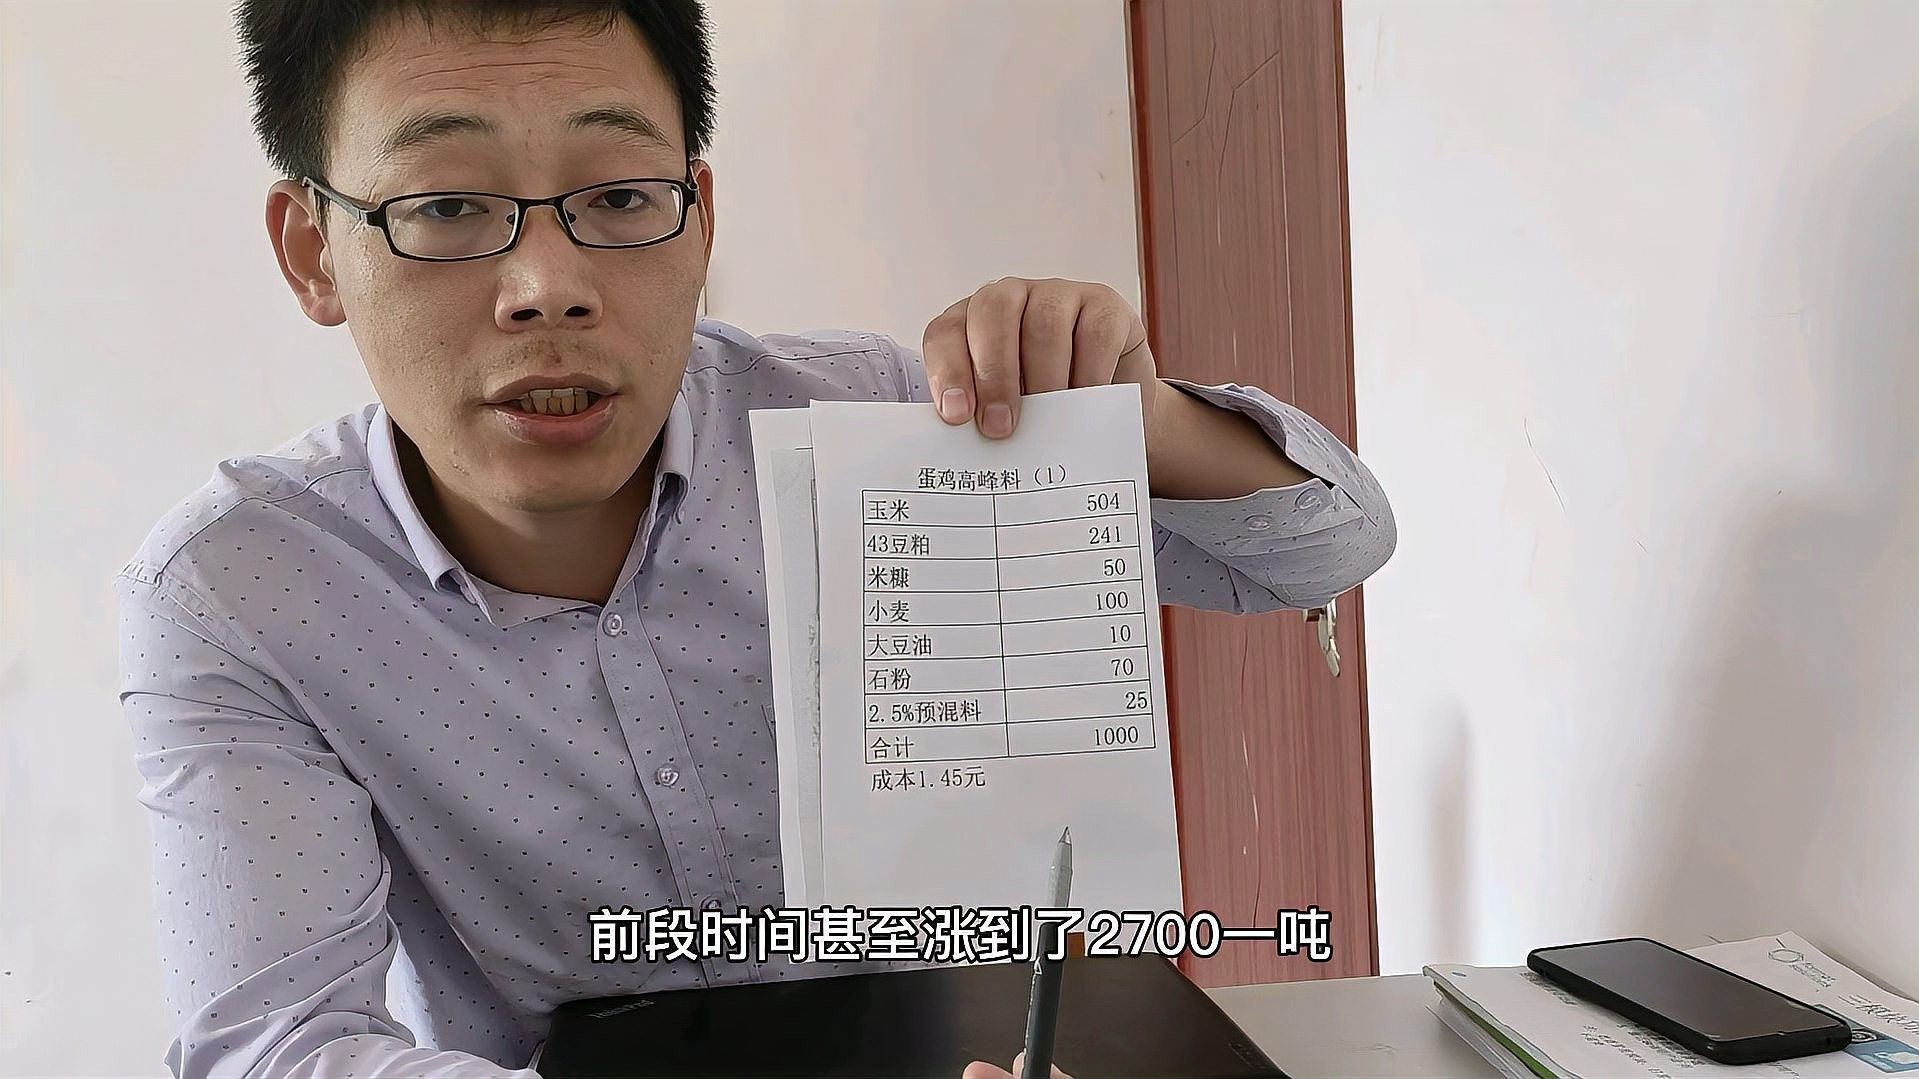 蛋鸡高峰料（1）
玉米 504
43豆粕 241
米糠 50
小麦 100
大豆油 10
石粉 70
2.5%预混料 25
合计 1000
成本1.45元
前段时间甚至涨到了2700一吨
ThinkPad